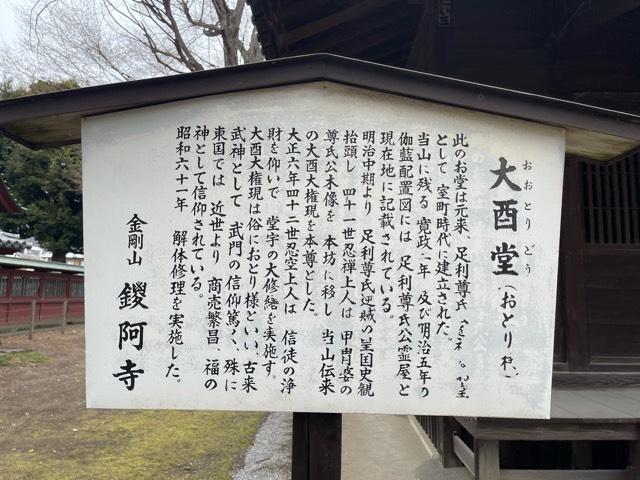 おおとりどう
大酉堂(おとりさま)
此のお堂は元来、足利尊氏
として 室町時代に建立された。
当山に残る 寛政二年 及び明治五年の
伽藍配置図には 足利尊氏公霊屋と
現在地に記載されている。
明治中期より 足利尊氏逆賊の皇国史観
抬頭し 四十一世忍禅上人は 甲冑姿の
尊氏公木像を 本坊に移し 当山伝来
の大酉大権現を本尊とした。
大正六年四十二世忍空上人は 信徒の浄
財を仰いで 堂宇の大修繕を実施す。
大酉大権現は俗におとり様といい、古来
武神として 武門の信仰篤く、殊に
東国では 近世より 商売繁昌、福の
神として信仰されている。
昭和六十一年 解体修理を実施した。
金剛山 鑁阿寺